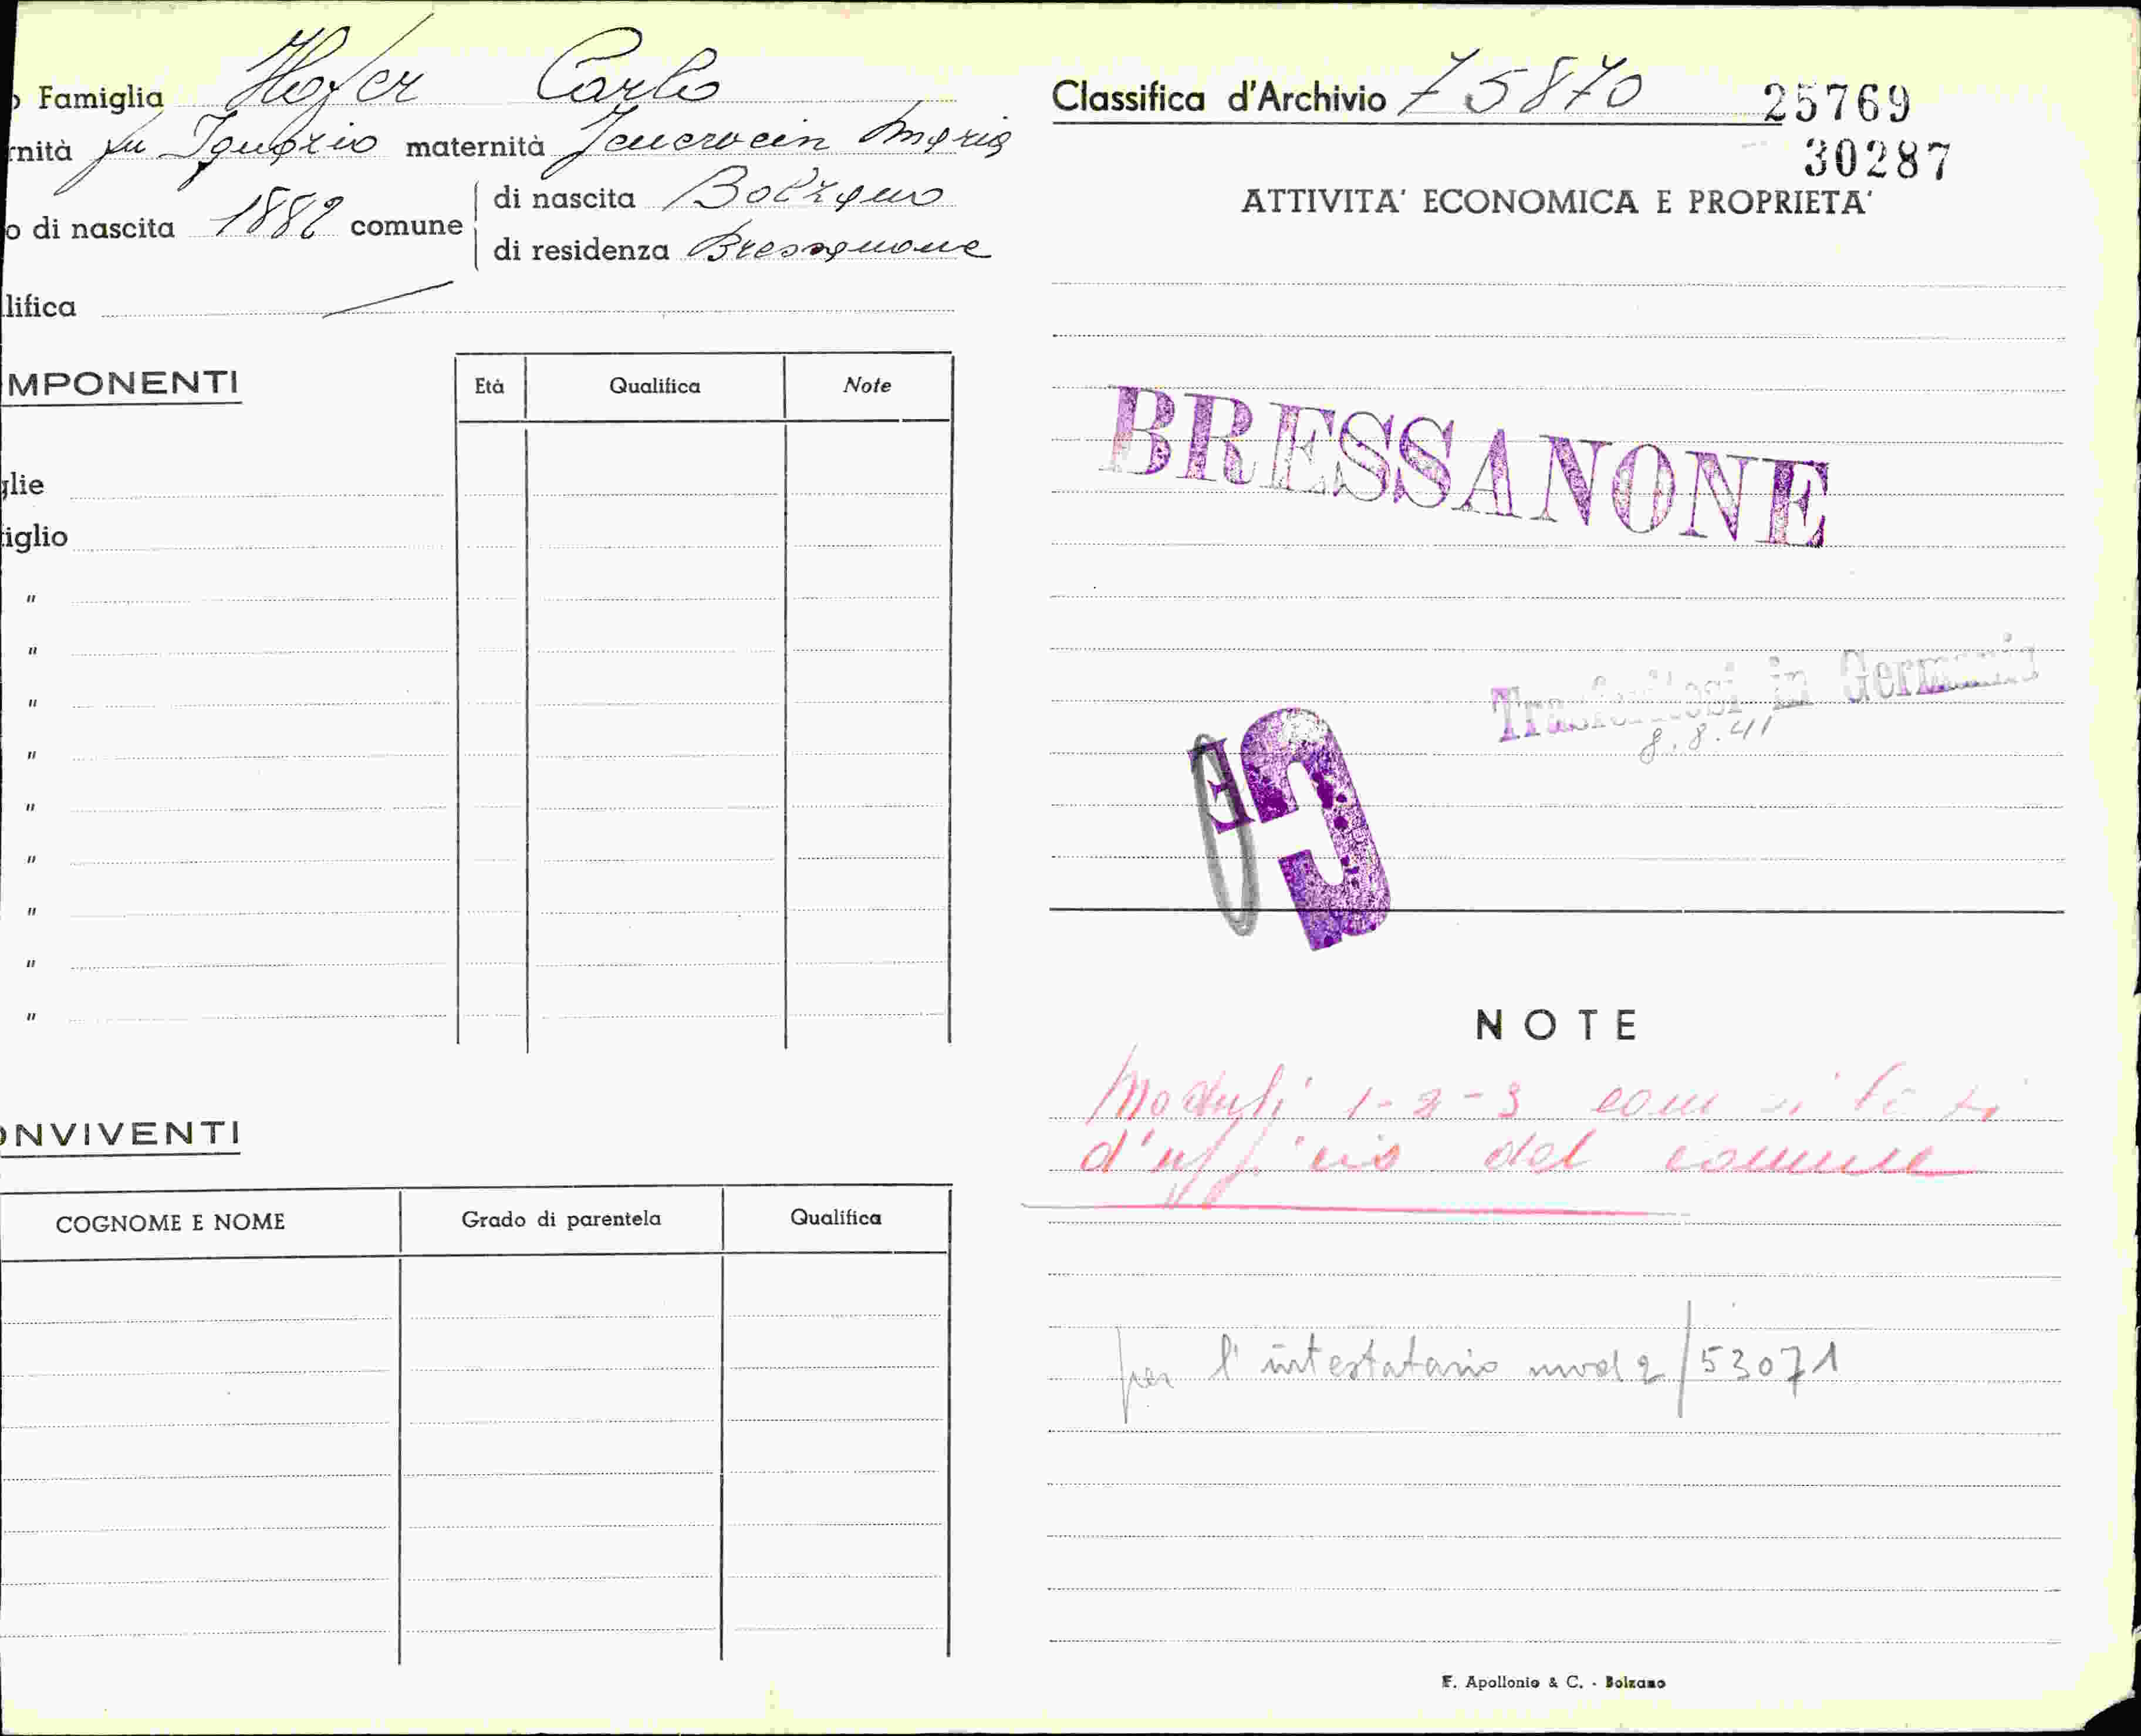 Famiglia Hofer Carlo
rnità fu Ignazio maternità Maria
o di nascita 1882 comune
di nascita Bolzano
di residenza Bressanone
lifica
MPONENTI
Età Qualifica Note
glie
iglio
"
"
"
"
"
"
"
"
"
ONVIVENTI
COGNOME E NOME Grado di parentela Qualifica
Classifica d'Archivio 75870 25769
30287
ATTIVITA' ECONOMICA E PROPRIETA'
BRESSANONE
Trasferitosi in Germania
8.8.41
G
E
NOTE
Moduli 1-2-3
d'ufficio del comune
per l'intestatario mod 2/53071
F. Apollonio & C. - Bolzano